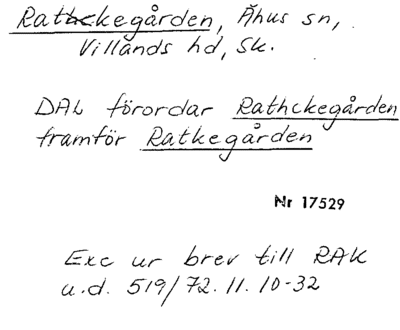 Rathckegården, Åhus sn,
Villands hd, Sk.
DAL förordar Rathckegården
framför Ratkegården
Nr 17529
Exc ur brev till RAK
u.d. 519/72.11.10-32